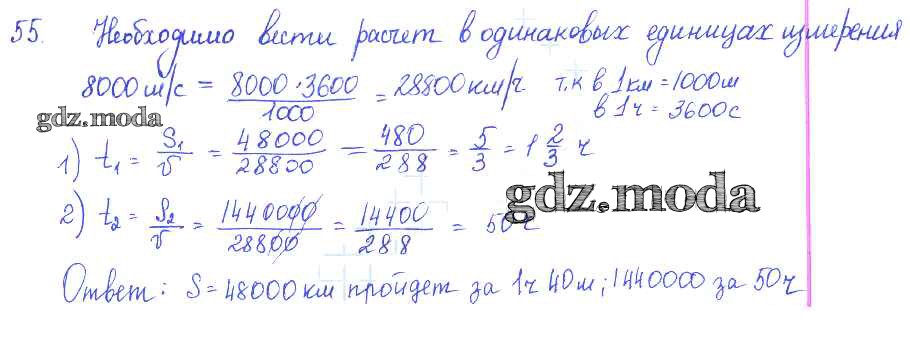 55. Необходимо вести расчет в одинаковых единицах измерения
8000 м/с = 8000·3600/1000 = 28800 км/ч т.к в 1км = 1000м
в 1ч = 3600с
gdz.moda
1) t₁ = S₁/v = 48000/28800 = 480/288 = 5/3 = 1 2/3 ч
gdz.moda
2) t₂ = S₂/v = 1440000/28800 = 14400/288 = 50ч
Ответ: S = 48000 км пройдет за 1ч 40м; 1440000 за 50ч